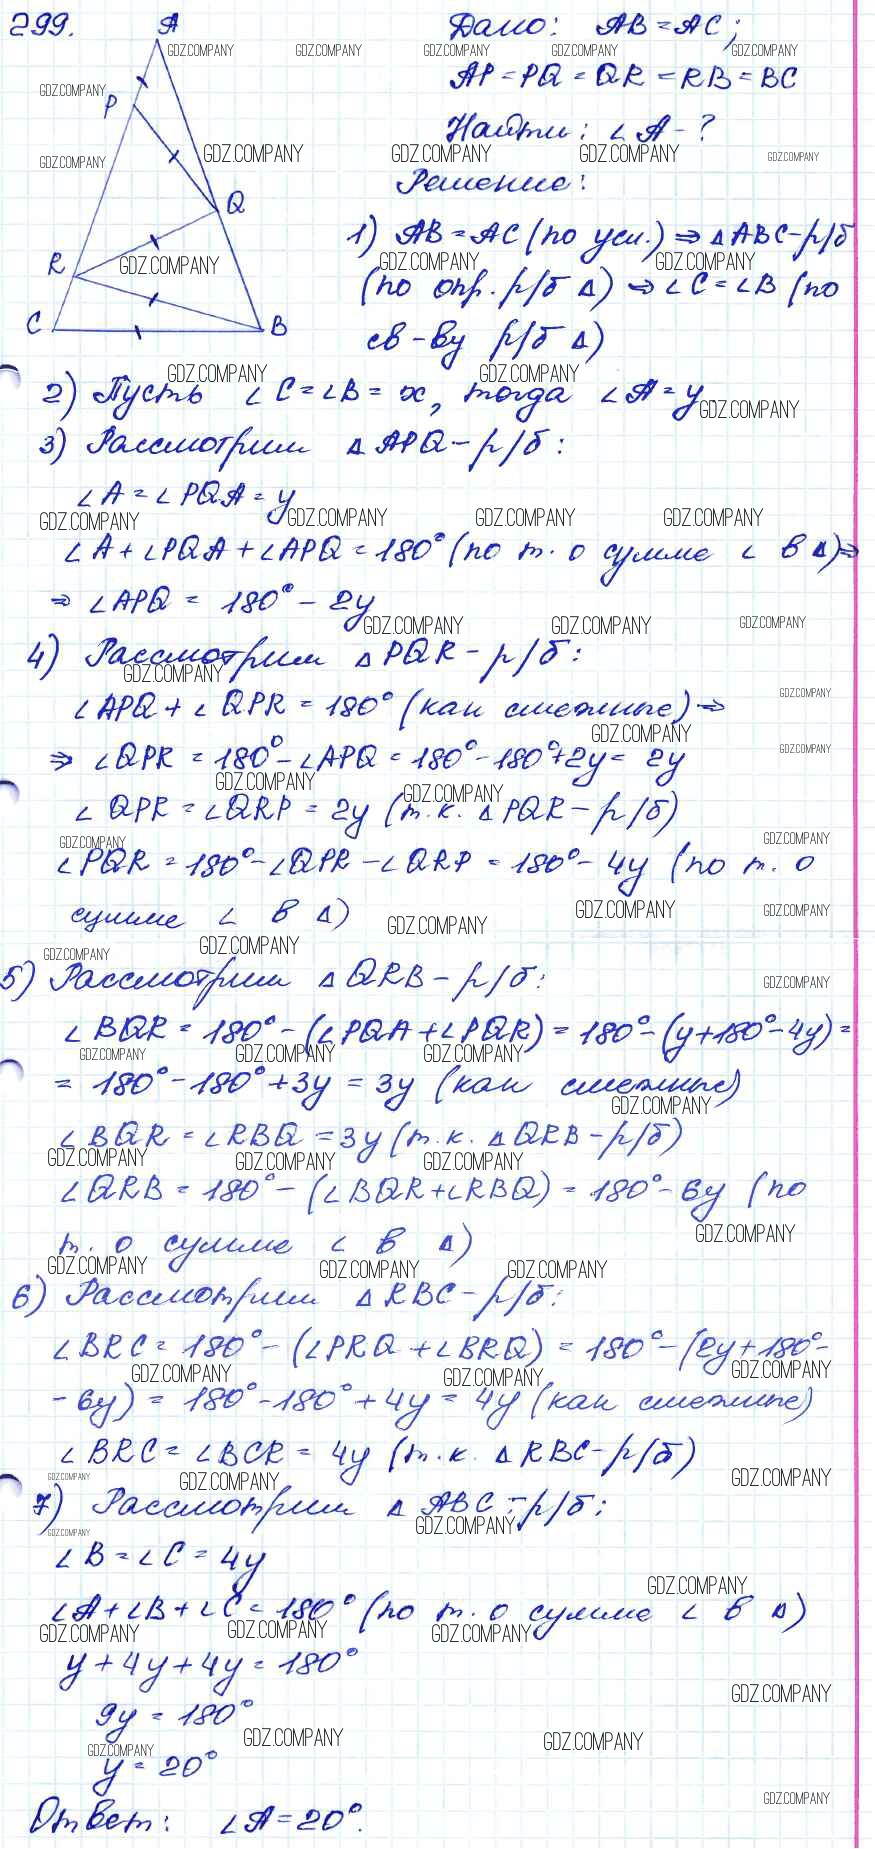 299.
A
P
Q
R
C
B
Дано: AB = AC;
AP = PQ = QR = RB = BC
Найти: ∠A - ?
Решение:
1) AB = AC (по усл.) ⇒ ΔABC - р/б
(по опр. р/б Δ) ⇒ ∠C = ∠B (по
св-ву р/б Δ)
2) Пусть ∠C = ∠B = x, тогда ∠A = y
3) Рассмотрим ΔAPQ - р/б:
∠A = ∠PQA = y
∠A + ∠PQA + ∠APQ = 180° (по т. о сумме ∠ в Δ) ⇒
⇒ ∠APQ = 180° - 2y
4) Рассмотрим ΔPQR - р/б:
∠APQ + ∠QPR = 180° (как смежные) ⇒
⇒ ∠QPR = 180° - ∠APQ = 180° - 180° + 2y = 2y
∠QPR = ∠QRP = 2y (т.к. ΔPQR - р/б)
∠PQR = 180° - ∠QPR - ∠QRP = 180° - 4y (по т. о
сумме ∠ в Δ)
5) Рассмотрим ΔQRB - р/б:
∠BQR = 180° - (∠PQA + ∠PQR) = 180° - (y + 180° - 4y) =
= 180° - 180° + 3y = 3y (как смежные)
∠BQR = ∠RBQ = 3y (т.к. ΔQRB - р/б)
∠QRB = 180° - (∠BQR + ∠RBQ) = 180° - 6y (по
т. о сумме ∠ в Δ)
6) Рассмотрим ΔRBC - р/б:
∠BRC = 180° - (∠PRQ + ∠BRQ) = 180° - (2y + 180° -
- 6y) = 180° - 180° + 4y = 4y (как смежные)
∠BRC = ∠BCR = 4y (т.к. ΔRBC - р/б)
7) Рассмотрим ΔABC - р/б:
∠B = ∠C = 4y
∠A + ∠B + ∠C = 180° (по т. о сумме ∠ в Δ)
y + 4y + 4y = 180°
9y = 180°
y = 20°
Ответ: ∠A = 20°.
GDZ.COMPANY